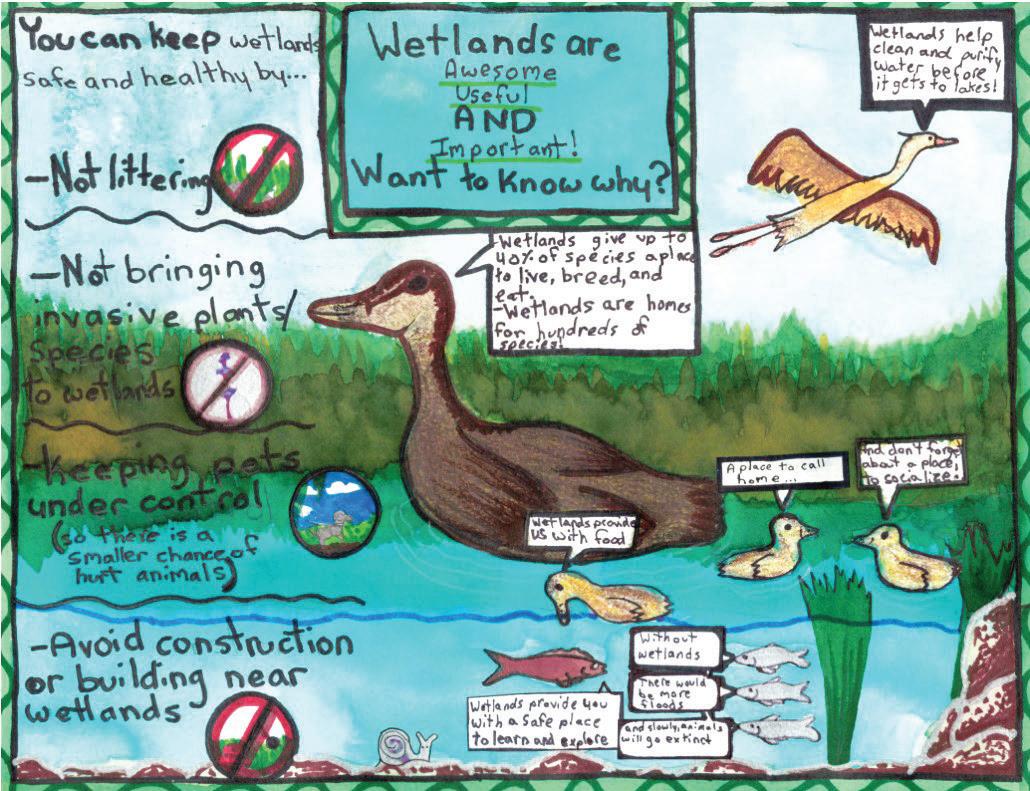 You can keep wetlands
safe and healthy by...
-Not littering
-Not bringing
invasive plants/
species
to wetlands
-Keeping pets
under control
(so there is a
smaller chance of
hurt animals)
-Avoid construction
or building near
wetlands
Wetlands are
Awesome
Useful
AND
Important!
Want to know why?
Wetlands help
clean and purify
water before
it gets to lakes!
-Wetlands give up to
40% of species a place
to live, breed, and
eat.
-Wetlands are homes
for hundreds of
species!
A place to call
home...
And don't forget
about a place
to socialize!
Wetlands provide
us with food
Without
wetlands
There would
be more
floods
and slowly, animals
will go extinct
Wetlands provide you
with a safe place
to learn and explore